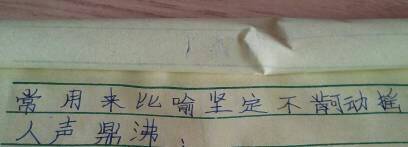 常用来比喻坚定不可动摇
人声鼎沸